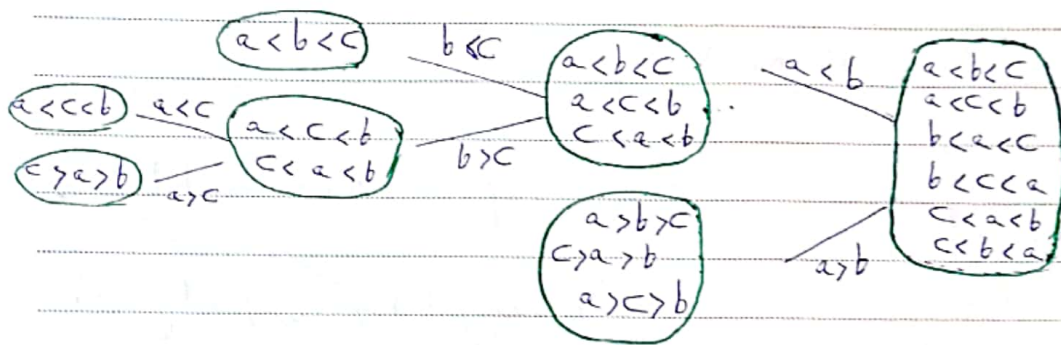 a < b < c
b < c
a < b < c
a < c < b
c < a < b
a < b
a < b < c
a < c < b
b < a < c
b < c < a
c < a < b
c < b < a
a < c < b
a < c
a < c < b
c < a < b
b > c
c > a > b
a > c
a > b > c
c > a > b
a > c > b
a > b